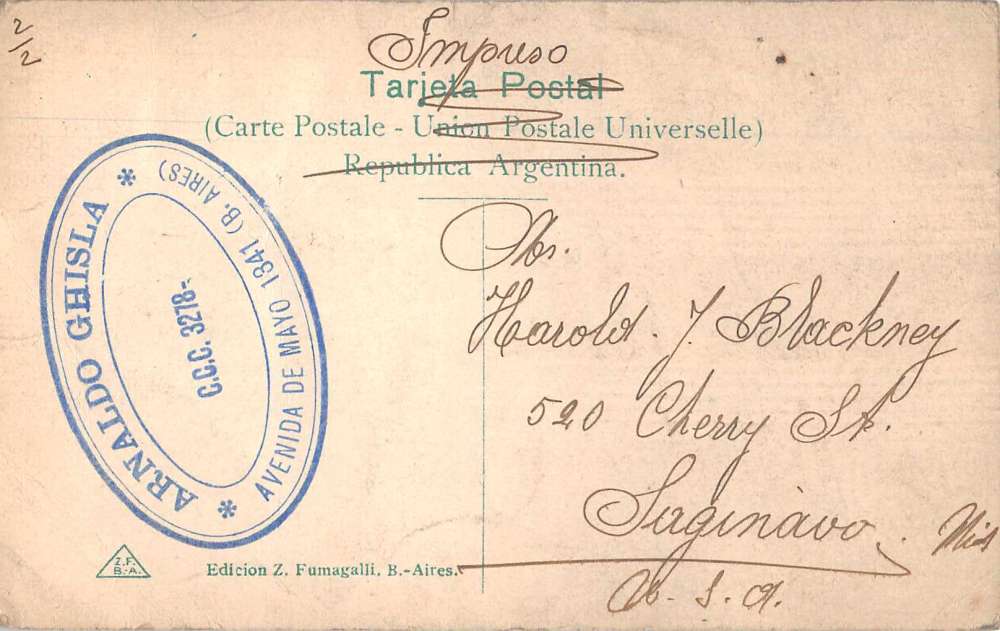 2/2
Impreso
Tarjeta Postal
(Carte Postale - Union Postale Universelle)
Republica Argentina.
ARNALDO GHISLA
AVENIDA DE MAYO 1341 (B. AIRES)
C.C.C. 3278-
Mr.
Harold. J. Blackney
520 Cherry St.
Saginavo. Mich
U. S. A.
Z.F.
B.-A.
Edicion Z. Fumagalli, B.-Aires.